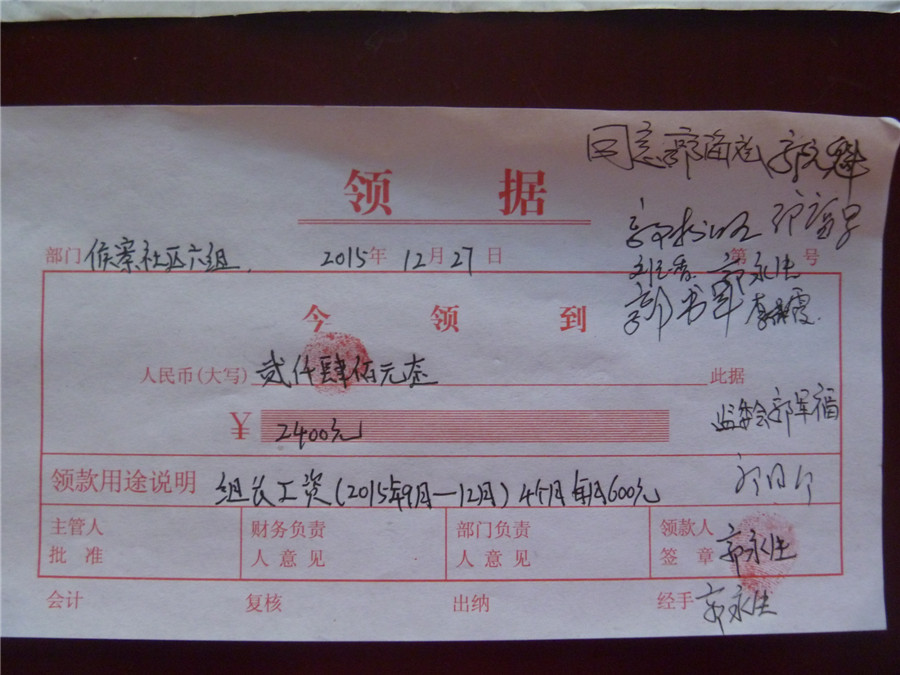 同意
领 据
部门 侯寨社区六组 2015年 12月 27日 第 号
刘志香 郭永法
郭书军 李彩霞
今 领 到
人民币(大写) 贰仟肆佰元 此据
监委会郭军福
¥ 2400元
领款用途说明 组长工资(2015年9月—12月)4个月每月600元
主管人批准 财务负责人意见 部门负责人意见 领款人签章 郭永法
会计 复核 出纳 经手 郭永法